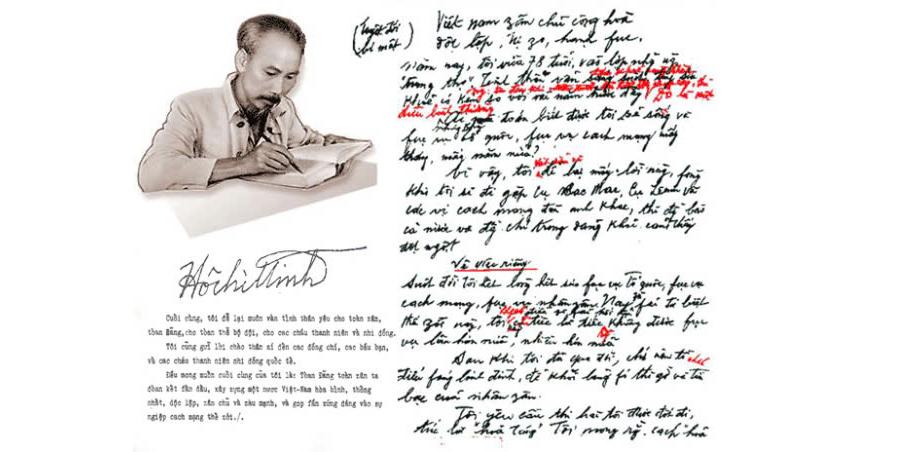 Hồ Chí Minh
Cuối cùng, tôi để lại muôn vàn tình thân yêu cho toàn zân,
toàn Đảng, cho toàn thể bộ đội, cho các cháu thanh niên và nhi đồng.
Tôi cũng gửi lời chào thân ái đến các đồng chí, các bầu bạn,
và các cháu thanh niên nhi đồng quốc tế.
Điều mong muốn cuối cùng của tôi là: Toàn Đảng toàn zân ta
đoàn kết fấn đấu, xây zựng một nước Việt-Nam hòa bình, thống
nhất, độc lập, zân chủ và zàu mạnh, và góp fần xứng đáng vào sự
ngiệp cách mạng thế zới./.
(Tuyệt đối
bí mật)
Việt nam zân chủ cộng hoà
độc lập, tự zo, hạnh fúc.
Năm nay, tôi vừa 78 tuổi, vào lớp những ng
"trung thọ". Tinh thần vẫn
khoẻ có kém so với vài năm trước đây
điều bình thường
toàn biết được tôi sẽ sống và
fục vụ tổ quốc, fục vụ cách mạng mấy
tháng, mấy năm nữa?
Vì vậy, tôi để lại mấy lời này, fòng
khi tôi sẽ đi gặp cụ Các Mác, cụ Lênin và
các vị cách mạng đàn anh khác, thì đồng bào
cả nước và đồng chí trong đảng khỏi cảm thấy
đột ngột
Về việc riêng
Suốt đời tôi hết lòng hết sức fục vụ Tổ quốc, fục vụ
cách mạng, fục vụ nhân zân. Nay fải từ biệt
thế zới này, tôi tiếc là tiếc không được fục
vụ lâu hơn nữa, nhiều hơn nữa
Sau khi tôi đã qua đời, chớ nên tổ chức
điếu fúng linh đình, để khỏi lãng fí thì zờ và tiền
bạc của nhân zân.
Tôi yêu cầu thi hài tôi được đốt đi,
tức là "hoả táng". Tôi mong rằng cách hoả